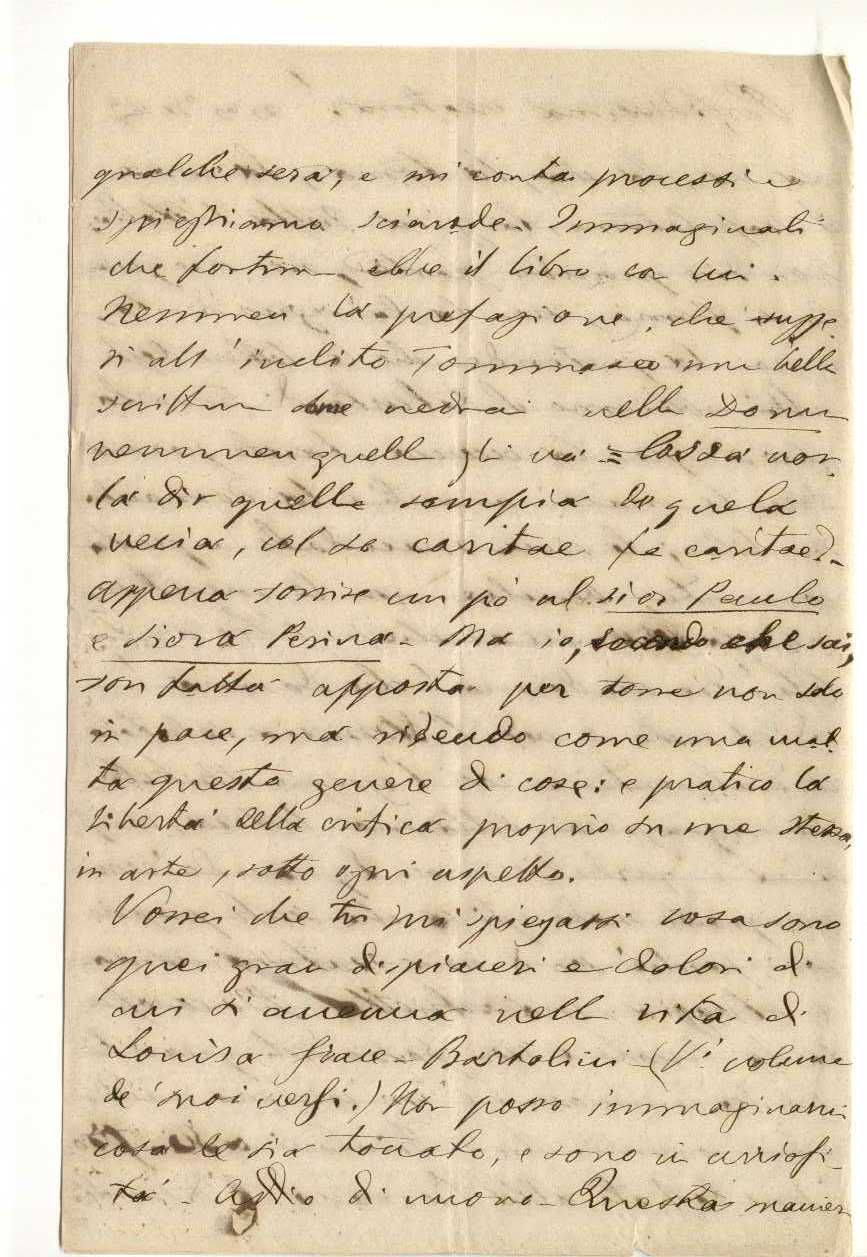 qualche sera, e mi conta processi e
spieghiamo sciarade. Immaginati
che fortuna ebbe il libro con lui.
Nemmen la prefazione, che
all'inclito Tommaseo una bella
scrittura vedrai nella Donna
nemmen quella gli va = Cossa
dir quella sempia de quela
vecia, col so caritae (e caritae)? -
appena sorrise un pò al sior Paulo
e Siora Perina - Ma io, che sai,
son fatta apposta per torre non solo
in pace, ma ridendo come una mat-
ta questo genere di cose: e pratico la
libertà della critica proprio su me stessa,
in arte, sotto ogni aspetto.
Vorrei che tu mi spiegassi cosa sono
quei gran dispiaceri e dolori di
cui si accenna nella vita di
Louisa Grace-Bartolini (V. volume
de' suoi versi.) Non posso immaginarmi
cosa le sia toccato, e sono in curiosi-
tà - Addio di nuovo - Questa